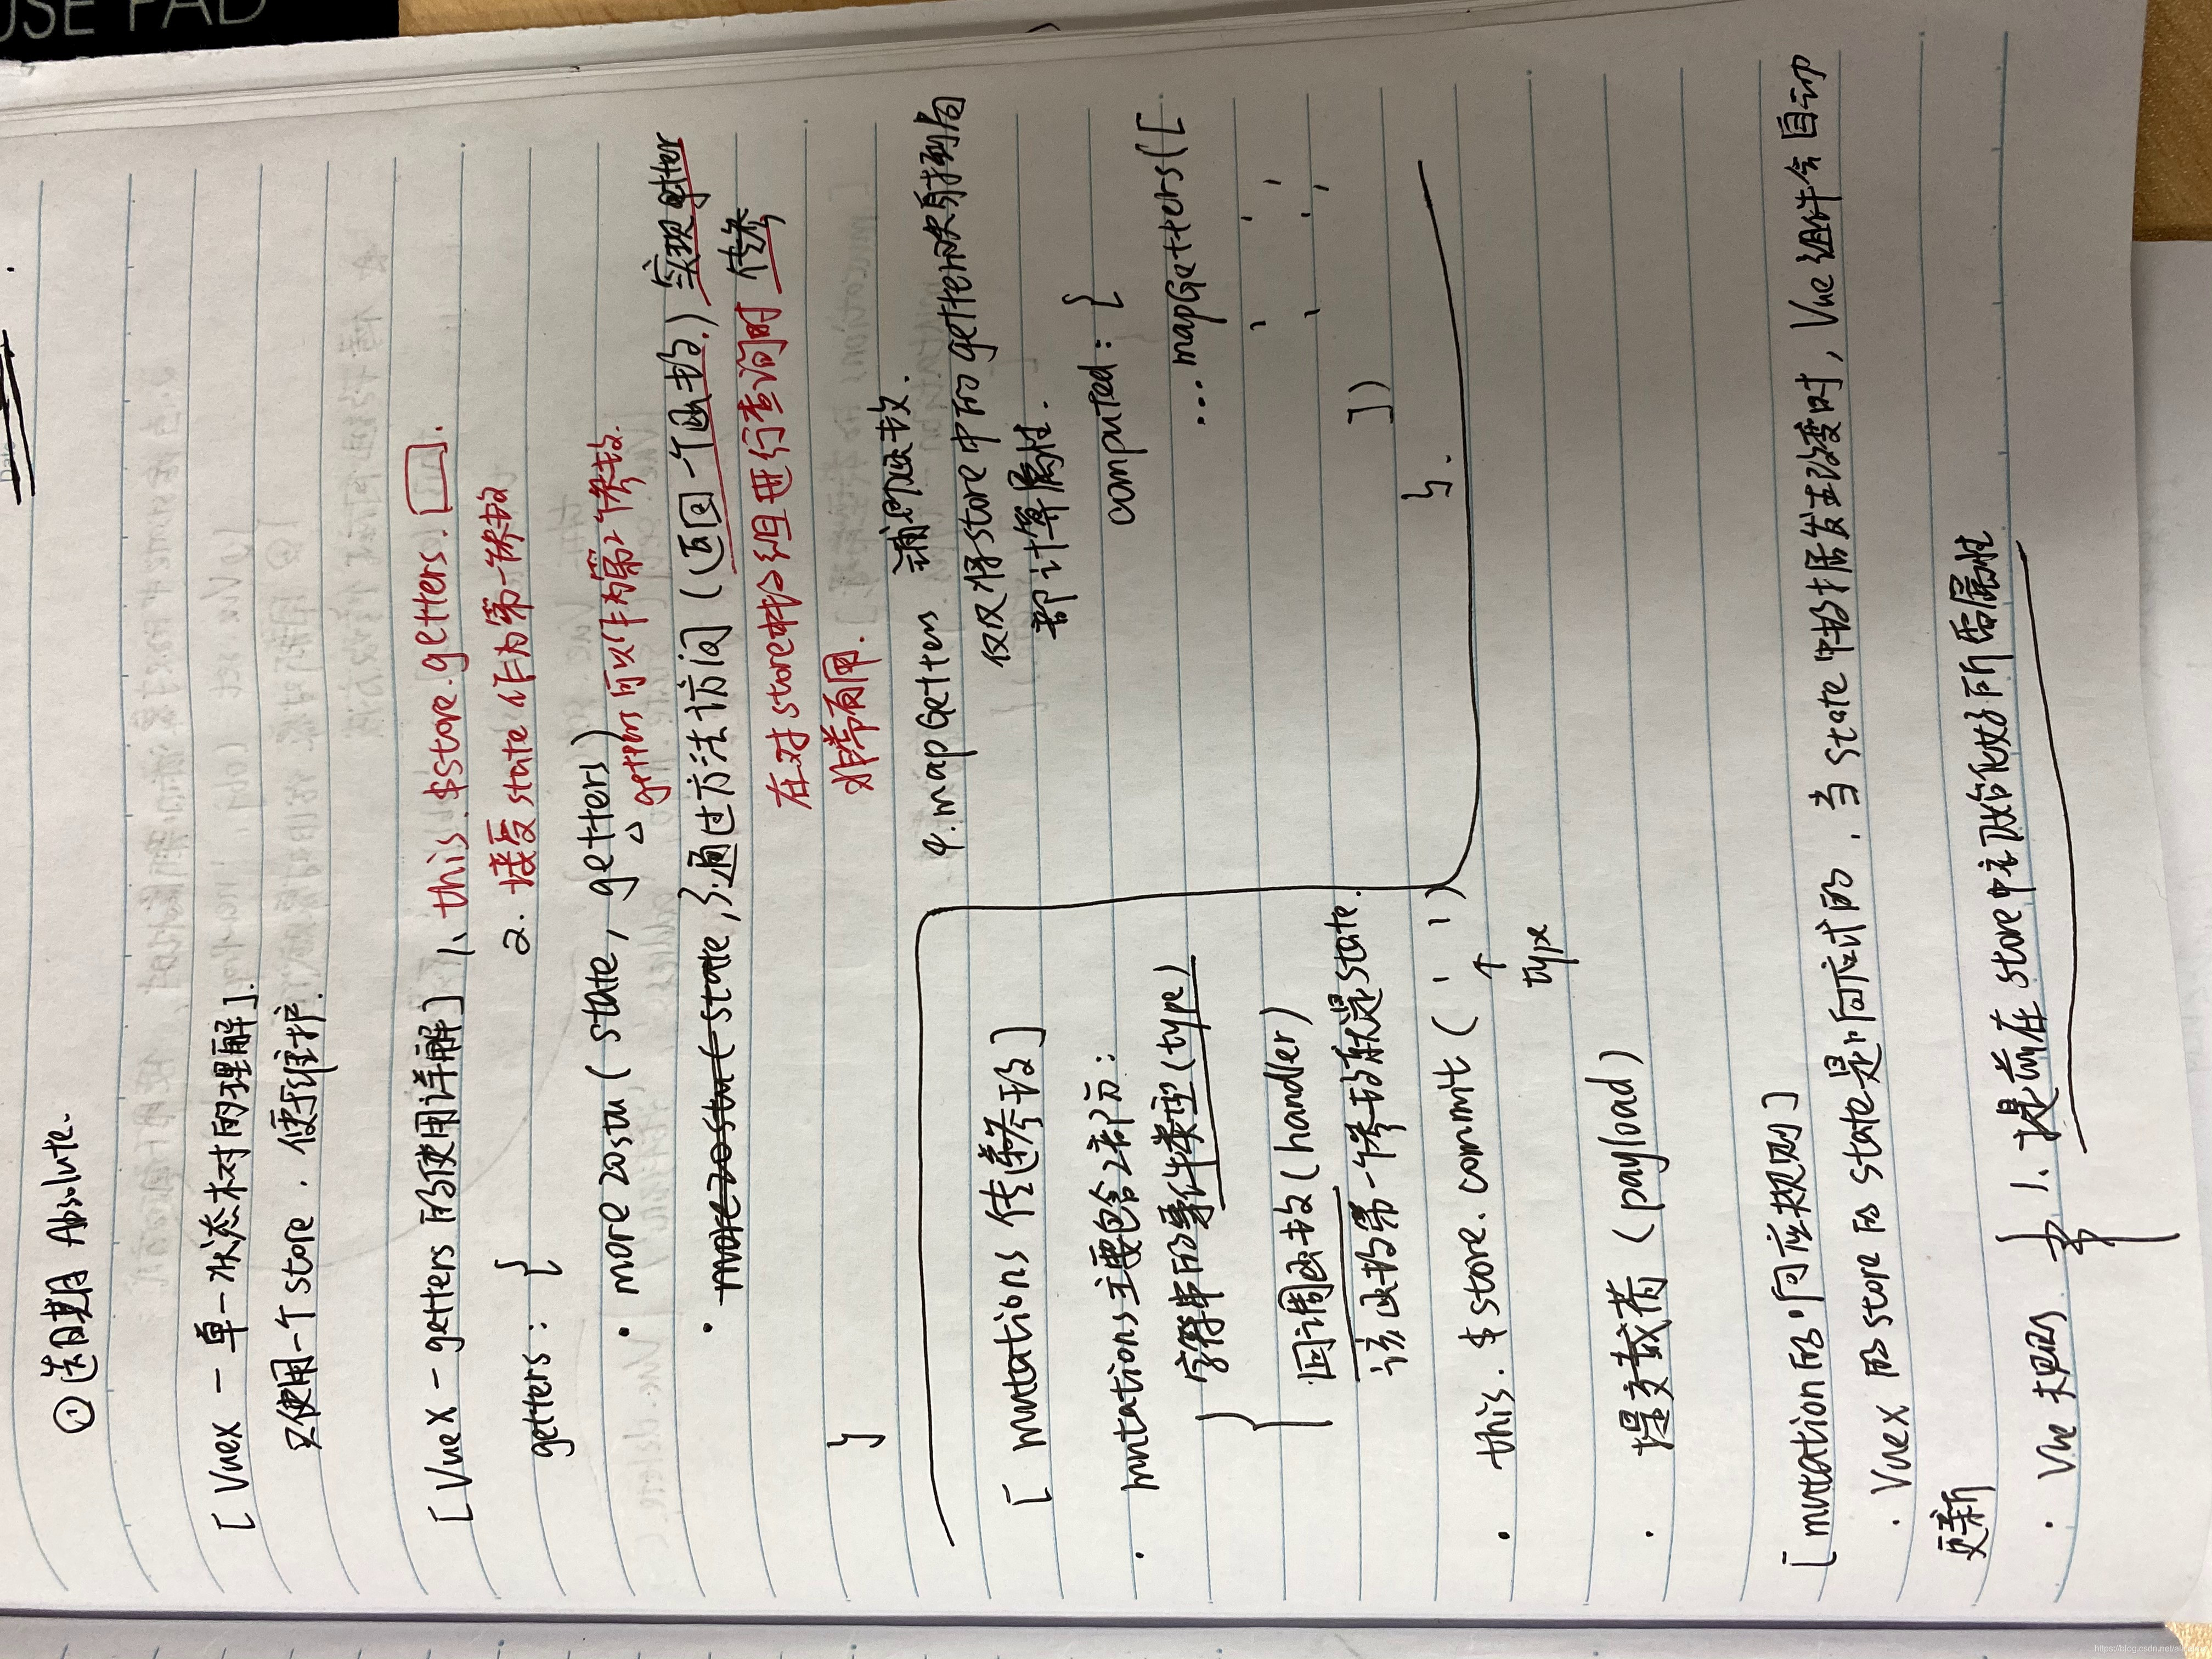 USE PAD
① 送日期 Absolute.
[ Vuex - 单一状态树的理解 ].
只使用一个 store . 便于维护.
[ Vuex - getters 的使用详解 ] 1、this.$store.getters.□.
2. 接受 state 作为第一个参数
getters : {
· more 20stu ( state , getters )
△ getters 可以作为第2个参数.
· more 20stu ( state , 3、通过方法访问 ( 返回一个函数. ) 实现 getter 传参
在对 store 中数组进行查询时
非常有用.
}
4. mapGetters 辅助函数.
仅仅将 store 中的 getter 映射到局
部计算属性.
computed : {
...mapGetters([
' ' ,
' ' ,
])
}.
[ mutations 传递参数 ]
· mutations 主要包含2部分 :
{ 字符串的事件类型 ( type )
回调函数 ( handler )
该函数的第一个参数就是 state.
· this . $ store . commit ( ' ' )
↑
type
· 提交载荷 ( payload )
[ mutation 的响应规则 ]
· Vuex 的 store 的 state 是响应式的 , 当 state 中数据发生改变时 , Vue 组件会自动
更新
· Vue 规则 1、提前在 store 中初始化好所需属性
https://blog.csdn.net/